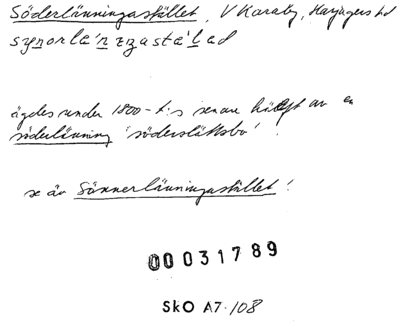 Söderlänningastället, V Karaby, Harjagers hd
synorlä'nzzastä'lad
ägdes under 1800-t:s senare hälft av en
söderlänning 'söderslättsbo'.
se äv Sönnerlänningastället!
00031789
SkO A7.108